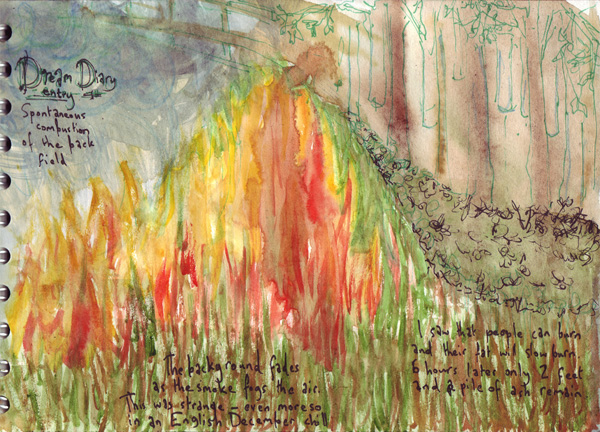 Dream Diary
entry
Spontaneous
combustion
of the back
field
The background fades
as the smoke fogs the air.
This was strange - even more so
in an English December chill
I saw that people can burn
and their fat will slow burn.
6 hours later only 2 feet
and a pile of ash remain.